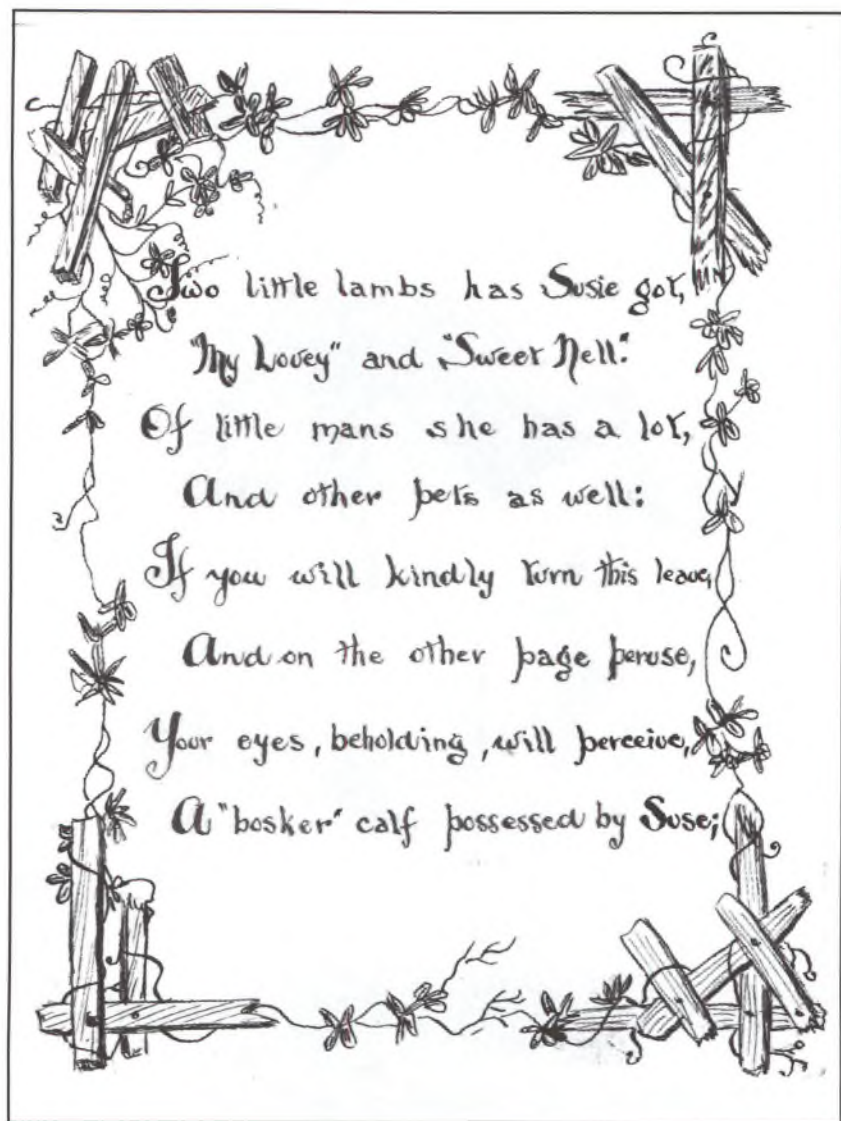 Two little lambs has Susie got,
"My Lovey" and "Sweet Nell."
Of little mans she has a lot,
And other pets as well:
If you will kindly turn this leave,
And on the other page peruse,
Your eyes, beholding, will perceive,
A "bosker" calf possessed by Suse;